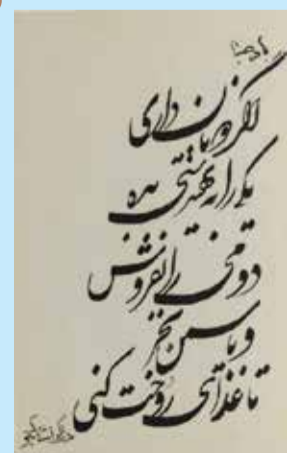 اگر دو نان داری
یکی را به تهیدستی بده
دومی را بفروش
و یاسمن بخر
تا غذای روحت کنی